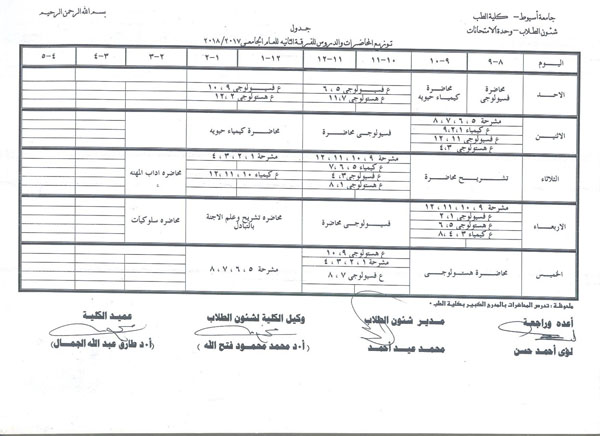 بسم الله الرحمن الرحيم
جامعة أسيوط - كلية الطب
شئون الطلاب - وحدة الامتحانات
جدول
توزيع المحاضرات والدروس للفرقة الثانيه للعام الجامعى ٢٠١٨/٢٠١٧
اليوم ٩-٨ ١٠-٩ ١١-١٠ ١٢-١١ ١-١٢ ٢-١ ٣-٢ ٤-٣ ٥-٤
الاحد
محاضرة فسيولوجى
محاضرة كيمياء حيويه
ع فسيولوجى ٥ ، ٦
ع هستولوجى ١١،٧
ع فسيولوجى ٩ ، ١٠
ع هستولوجى ٢ ، ١٢
الاثنين
مشرحة ٥ ، ٦ ، ٧ ، ٨
ع كيمياء ٩،٢،١
ع فسيولوجى ١١ ، ١٢
ع هستولوجى ٤،٣
فسيولوجى محاضرة
محاضرة كيمياء حيويه
الثلاثاء
تشريح محاضرة
مشرحة ٩ ، ١٠ ، ١١ ، ١٢
ع كيمياء ٧،٦،٥
ع فسيولوجى ٤،٣
ع هستولوجى ٨،١
مشرحة ١ ، ٢ ، ٣ ، ٤
ع كيمياء ١٠ ، ١١ ، ١٢
محاضره اداب المهنه
الاربعاء
مشرحة ٩ ، ١٠ ، ١١ ، ١٢
ع فسيولوجى ٢،١
ع هستولوجى ٦،٥
ع كيمياء ٣ ، ٤ ، ٨
فسيولوجى محاضرة
محاضره تشريح وعلم الاجنة بالتبادل
محاضرة سلوكيات
الخميس
محاضرة هستولوجى
ع هستولوجى ٩ ، ١٠
مشرحة ١ ، ٢ ، ٣ ، ٤
ع فسيولوجى ٧ ، ٨
مشرحة ٥ ، ٦ ، ٧ ، ٨
ملحوظة : تدرس المحاضرات بالمدرج الكبير بكلية الطب
أعده وراجعة
لؤى أحمد حسن
مدير شئون الطلاب
محمد عبد أحمد
وكيل الكلية لشئون الطلاب
(أ.د محمد محمود فتح الله)
عميد الكلية
(أ.د طارق عبد الله الجمال)